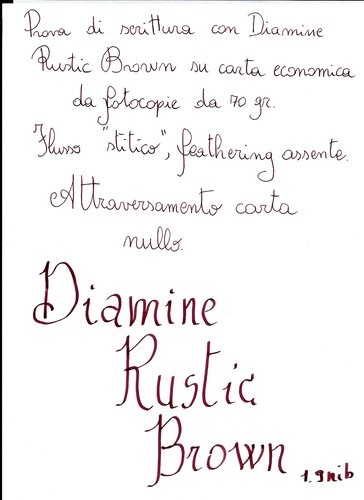 Prova di scrittura con Diamine
Rustic Brown su carta economica
da fotocopie da 70 gr.
Flusso "stitico", feathering assente.
Attraversamento carta
nullo.
Diamine
Rustic
Brown
1.9 nib